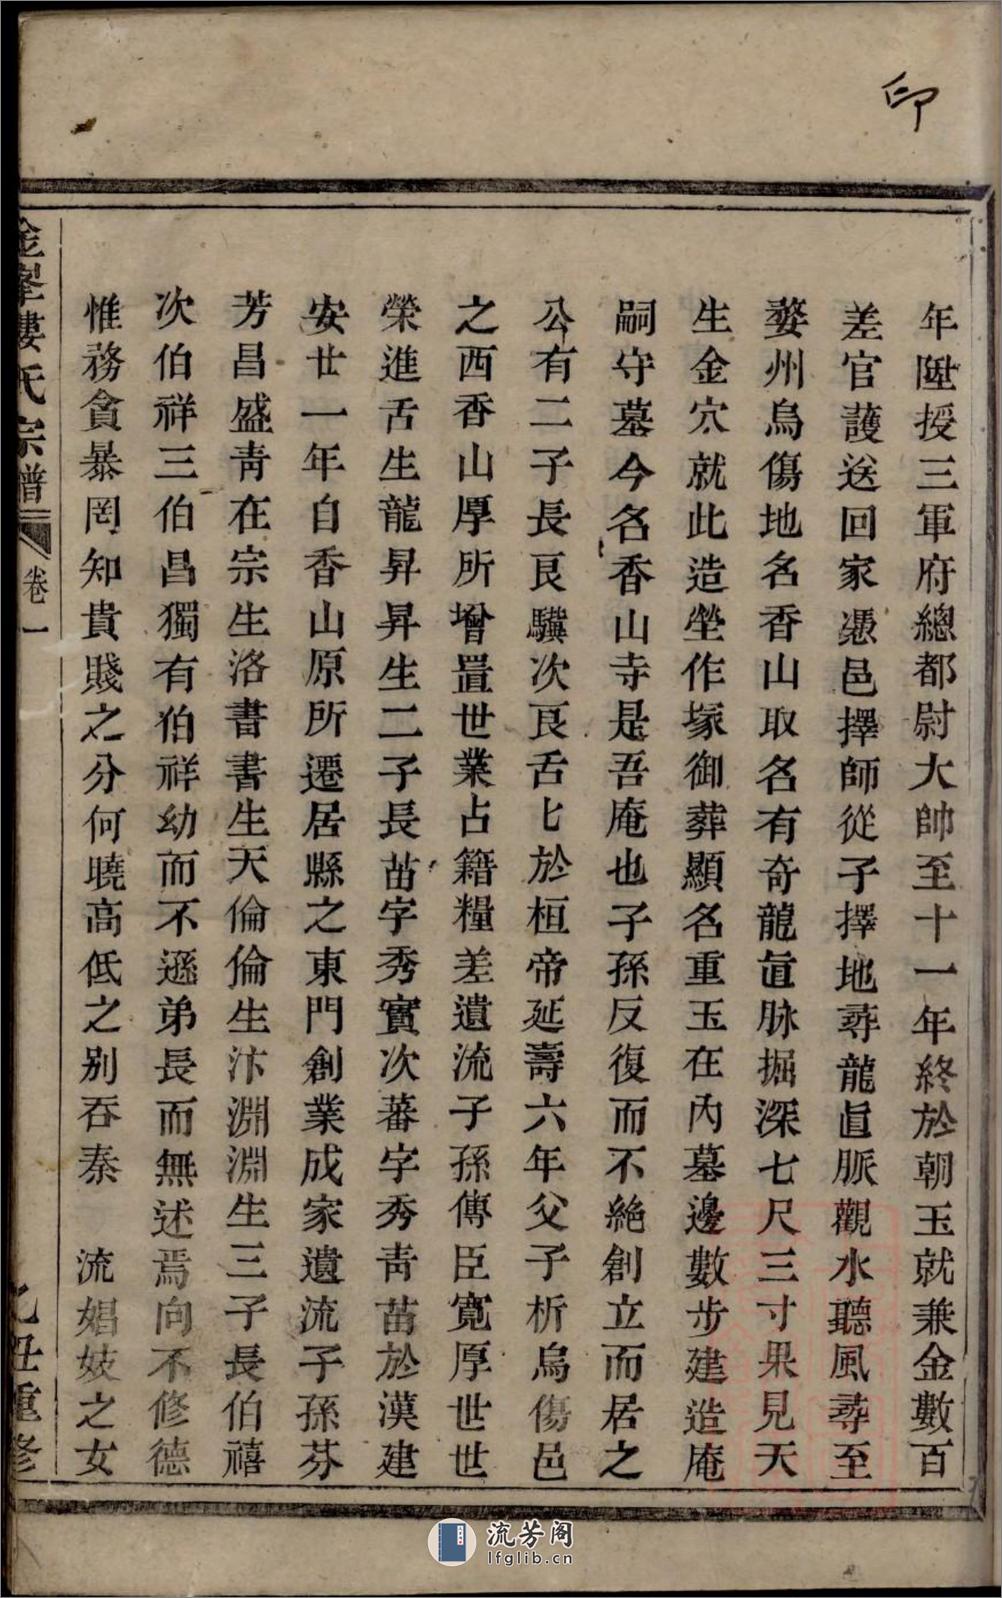 印
年陞授三軍府總都尉大帥至十一年終於朝玉就兼金數百
差官護送回家憑邑擇師從子擇地尋龍眞脈觀水聽風尋至
婺州烏傷地名香山取名有奇龍直脉掘深七尺三寸果見天
生金穴就此造塋作塚御葬顯名重玉在內墓邊數步建造庵
嗣守墓今名香山寺是吾庵也子孫反復而不絶創立而居之
公有二子長艮驥次艮舌匕於桓帝延壽六年父子析烏傷邑
之西香山厚所增置世業占籍糧差遺流子孫傳臣寬厚世世
榮進舌生龍昇昇生二子長苗字秀實次蕃字秀青苗於漢建
安廿一年自香山原所遷居縣之東門創業成家遺流子孫芬
芳昌盛靑在宗生洛書書生天倫倫生汴淵淵生三子長伯禧
次伯祥三伯昌獨有伯祥幼而不遜弟長而無述焉向不修德
惟務貪暴罔知貴賤之分何曉高低之别吞泰 流娼妓之女
金峯婁氏宗譜 卷一 乙丑重修
流芳阁
lfglib.cn